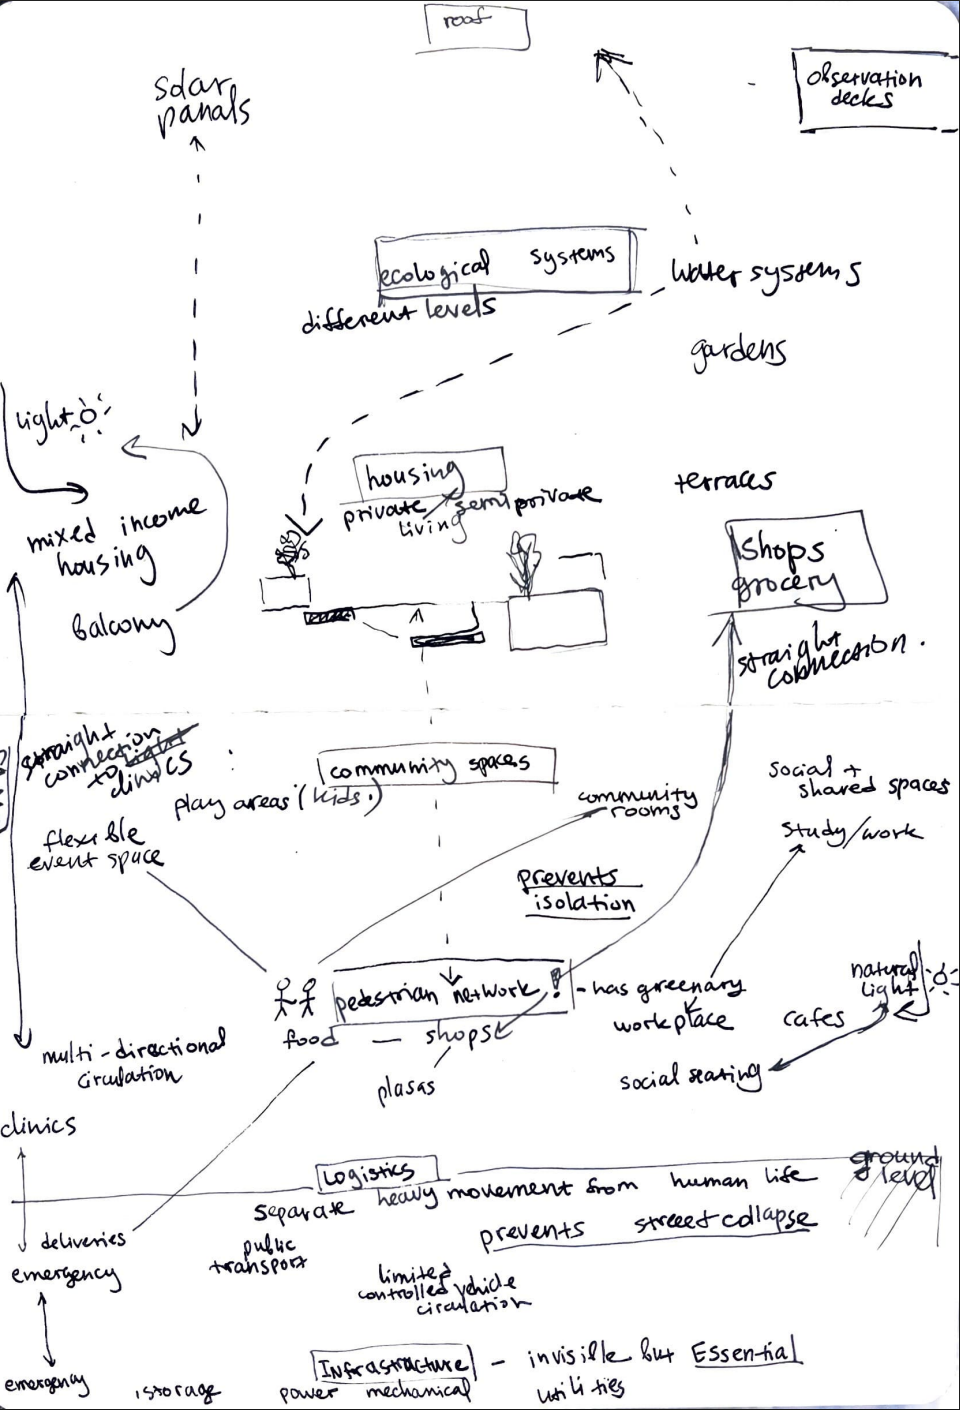 roof
solar
panals
observation
decks
ecological systems
different levels
water systems
gardens
light
housing
private / semi private
living
terraces
mixed income
housing
Balcony
shops
grocery
straight
connection.
straight
connection
to light
clinics
:
community spaces
play areas (kids.)
community
rooms
social +
shared spaces
study/work
flexible
event space
prevents
isolation
pedestrian network !
- has greenary
natural
light
workplace
cafes
food — shops
social seating
multi-directional
circulation
plasas
clinics
Logistics
ground
level
separate heavy movement from human life
prevents streeet collapse
deliveries
public
transport
emergency
limited
controlled vehicle
circulation
Infrastracture - invisible but Essential
emergency
storage
power mechanical
utilities